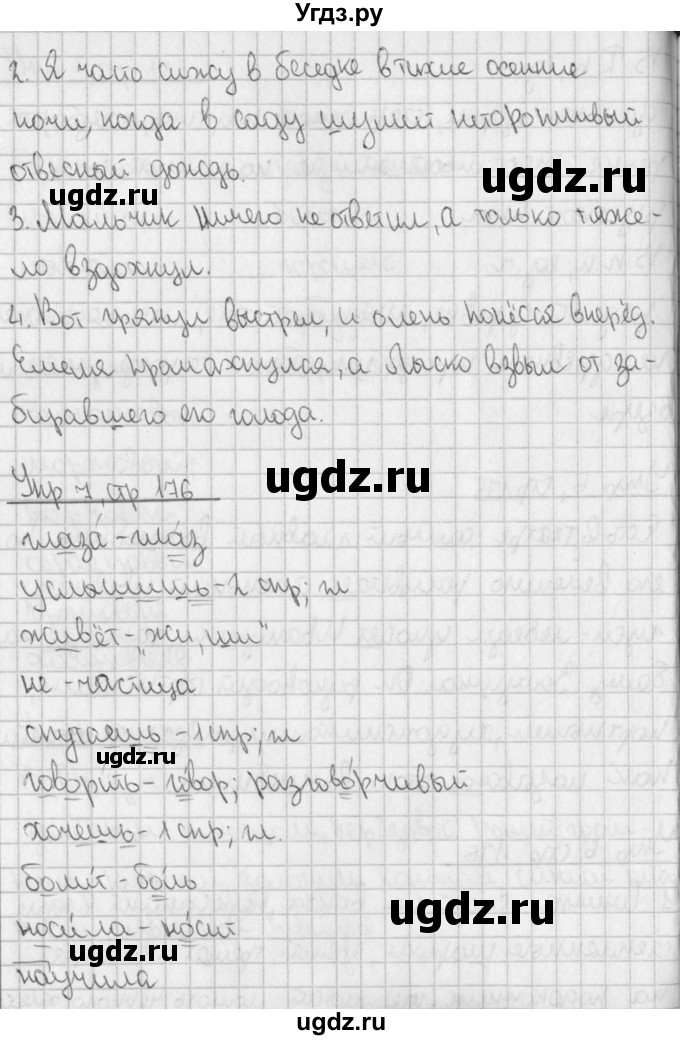 Угдз.ру
2. Я часто сижу в беседке в тихие осенние
ночи, когда в саду шумит неторопливый
отвесный дождь.
ugdz.ru
3. Мальчик ничего не ответил, а только тяже-
ло вздохнул.
ugdz.ru
4. Вот грянул выстрел, и олень понёсся вперёд.
Емеля промахнулся, а Лыско взвыл от за-
биравшего его голода.
ugdz.ru
Упр 7, стр 176
глаза́ - гла́з
услышишь - 2 спр; гл
живёт - "жи, ши"
не - частица
спутаешь - 1 спр; гл
ugdz.ru
говорить - го́вор; разгово́рчивый
хочешь - 1 спр; гл.
боли́т - бо́ль
ugdz.ru
носи́ла - но́сит
научила
ugdz.ru
ugdz.ru